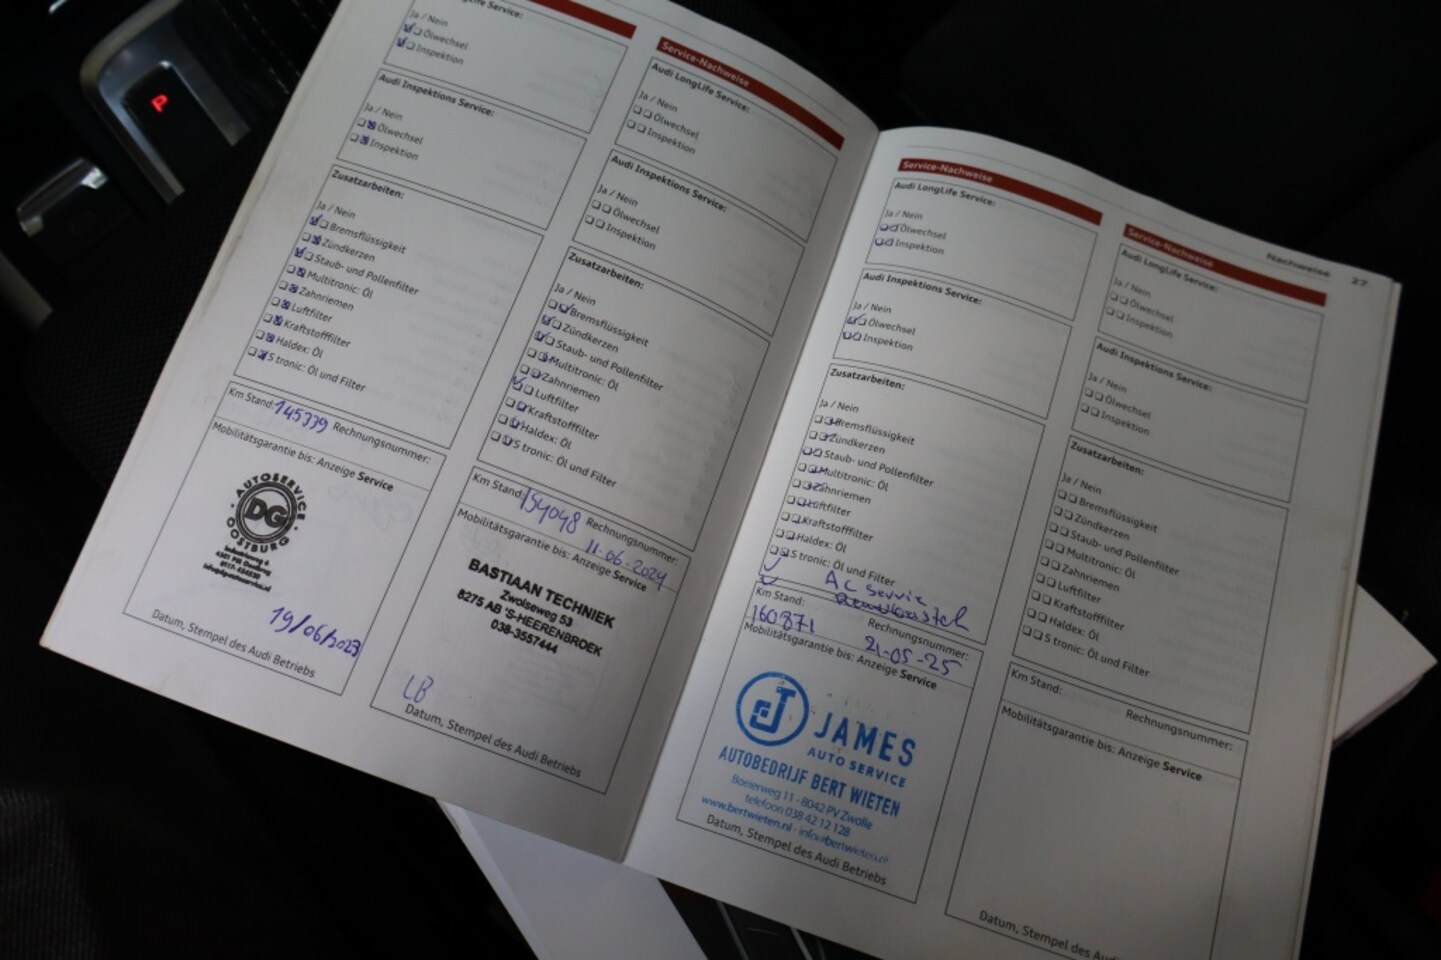 P
LongLife Service:
Ja / Nein
Ölwechsel
Inspektion
Audi Inspektions Service:
Ja / Nein
Ölwechsel
Inspektion
Zusatzarbeiten:
Ja / Nein
Bremsflüssigkeit
Zündkerzen
Staub- und Pollenfilter
Multitronic: Öl
Zahnriemen
Luftfilter
Kraftstofffilter
Haldex: Öl
S tronic: Öl und Filter
Km Stand: 145339 Rechnungsnummer:
Mobilitätsgarantie bis: Anzeige Service
AUTOSERVICE
DG
OOSTBURG
19/06/2023
Datum, Stempel des Audi Betriebs
Service-Nachweise
Audi LongLife Service:
Ja / Nein
Ölwechsel
Inspektion
Audi Inspektions Service:
Ja / Nein
Ölwechsel
Inspektion
Zusatzarbeiten:
Ja / Nein
Bremsflüssigkeit
Zündkerzen
Staub- und Pollenfilter
Multitronic: Öl
Zahnriemen
Luftfilter
Kraftstofffilter
Haldex: Öl
S tronic: Öl und Filter
Km Stand: 154048 Rechnungsnummer:
11-06-2024
Mobilitätsgarantie bis: Anzeige Service
BASTIAAN TECHNIEK
Zwolseweg 53
8275 AB 'S-HEERENBROEK
038-3557444
LB
Datum, Stempel des Audi Betriebs
Service-Nachweise
Audi LongLife Service:
Ja / Nein
Ölwechsel
Inspektion
Audi Inspektions Service:
Ja / Nein
Ölwechsel
Inspektion
Zusatzarbeiten:
Ja / Nein
Bremsflüssigkeit
Zündkerzen
Staub- und Pollenfilter
Multitronic: Öl
Zahnriemen
Luftfilter
Kraftstofffilter
Haldex: Öl
S tronic: Öl und Filter
AC Service
Km Stand: Rechnungsnummer:
160871 21-05-25
Mobilitätsgarantie bis: Anzeige Service
JAMES
AUTO SERVICE
AUTOBEDRIJF BERT WIETEN
Boeierweg 11 - 8042 PV Zwolle
telefoon 038 42 12 128
www.bertwieten.nl - info@bertwieten.nl
Datum, Stempel des Audi Betriebs
Nachweise 27
Service-Nachweise
Audi LongLife Service:
Ja / Nein
Ölwechsel
Inspektion
Audi Inspektions Service:
Ja / Nein
Ölwechsel
Inspektion
Zusatzarbeiten:
Ja / Nein
Bremsflüssigkeit
Zündkerzen
Staub- und Pollenfilter
Multitronic: Öl
Zahnriemen
Luftfilter
Kraftstofffilter
Haldex: Öl
S tronic: Öl und Filter
Km Stand: Rechnungsnummer:
Mobilitätsgarantie bis: Anzeige Service
Datum, Stempel des Audi Betriebs